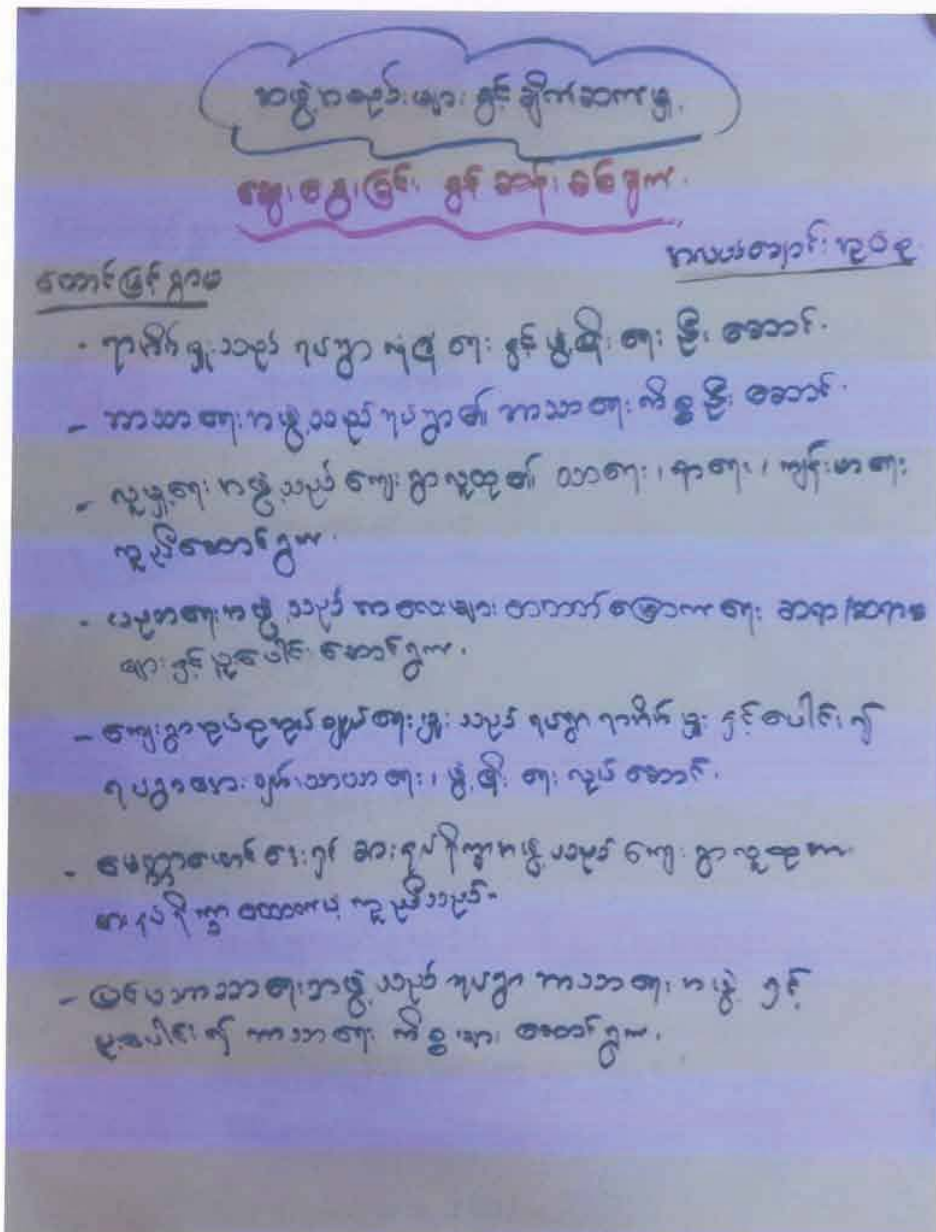 အဖွဲ့အစည်းများ နှင့် ချိတ်ဆက်မှု
ဆွေးနွေးခြင်း နှင့် ဆန်းစစ်ချက်
အလယ်ချောင်း
တောင်ဖြင့်ရွာမ
· ရာအိမ်မှူးသည် ရပ်ရွာ လုံခြုံရေး နှင့် ဖွံ့ဖြိုးရေး ဦးဆောင်.
- ဘာသာရေးအဖွဲ့သည် ရပ်ရွာ၏ ဘာသာရေးကိစ္စ ဦးဆောင်.
- လူမှုရေးအဖွဲ့သည် ကျေးရွာလူထု၏ သာရေး၊ နာရေး၊ ကျန်းမာရေး
ကူညီဆောင်ရွက်.
- ပညာရေးအဖွဲ့သည် ကလေးများ တတ်မြောက်ရေး ဆရာ/ဆရာမ
များနှင့် ပူးပေါင်း ဆောင်ရွက်.
- ကျေးရွာ အုပ်ချုပ်ရေးမှူးသည် ရပ်ရွာ ရာအိမ်မှူး နှင့်ပေါင်း၍
ရပ်ရွာအေးချမ်းသာယာရေး၊ ဖွံ့ဖြိုးရေး လုပ်ဆောင်.
- မေတ္တာ ဆားနပ်ရိက္ခာအဖွဲ့သည် ကျေးရွာလူထုအား
စားနပ်ရိက္ခာ ထောက်ပံ့ ကူညီသည်.
- မြင်မဘာသာရေးအဖွဲ့သည် ရပ်ရွာ ဘာသာရေးအဖွဲ့ နှင့်
ပူးပေါင်း၍ ဘာသာရေး ကိစ္စများ ဆောင်ရွက်.